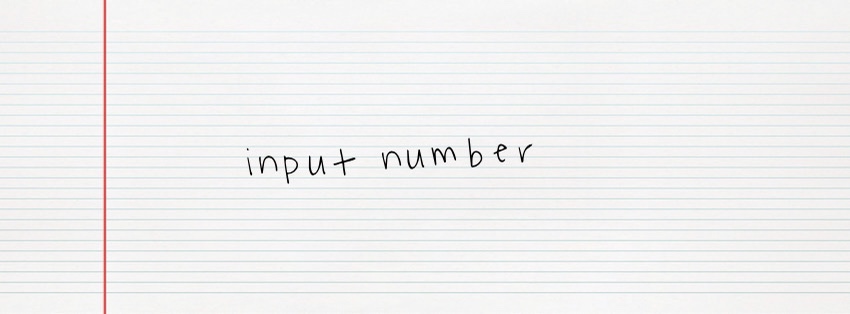 input number